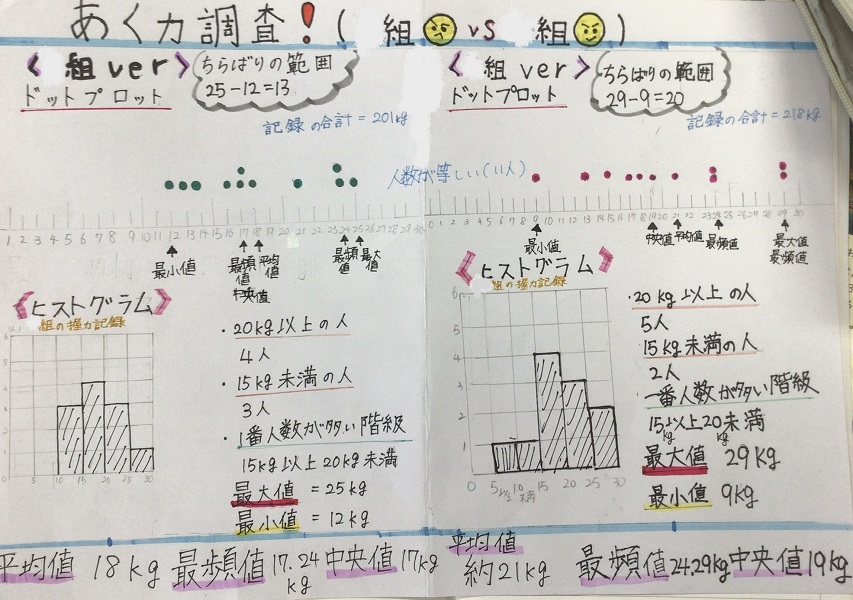 あく力調査！( 組 vs 組 )
< 組 ver >
ちらばりの範囲
25-12=13
ドットプロット
記録の合計=201kg
人数が等しい(11人)
1 2 3 4 5 6 7 8 9 10 11 12 13 14 15 16 17 18 19 20 21 22 23 24 25 26 27 28 29 30
最小値
最頻値
中央値
平均値
最頻値
最大値
《ヒストグラム》
組の握力記録
0 5 10 15 20 25 30
・20kg以上の人
4人
・15kg未満の人
3人
・1番人数が多い階級
15kg以上20kg未満
最大値 =25kg
最小値 =12kg
平均値 18kg 最頻値 17.24kg 中央値 17kg
< 組 ver >
ちらばりの範囲
29-9=20
ドットプロット
記録の合計=218kg
0 1 2 3 4 5 6 7 8 9 10 11 12 13 14 15 16 17 18 19 20 21 22 23 24 25 26 27 28 29 30
最小値
中央値
平均値
最頻値
最大値
最頻値
《ヒストグラム》
組の握力記録
6
5
4
3
2
1
0 5以上 10未満 15 20 25 30
・20kg以上の人
5人
15kg未満の人
2人
一番人数が多い階級
15kg以上20kg未満
最大値 29kg
最小値 9kg
平均値 約21kg 最頻値 24,29kg 中央値 19kg